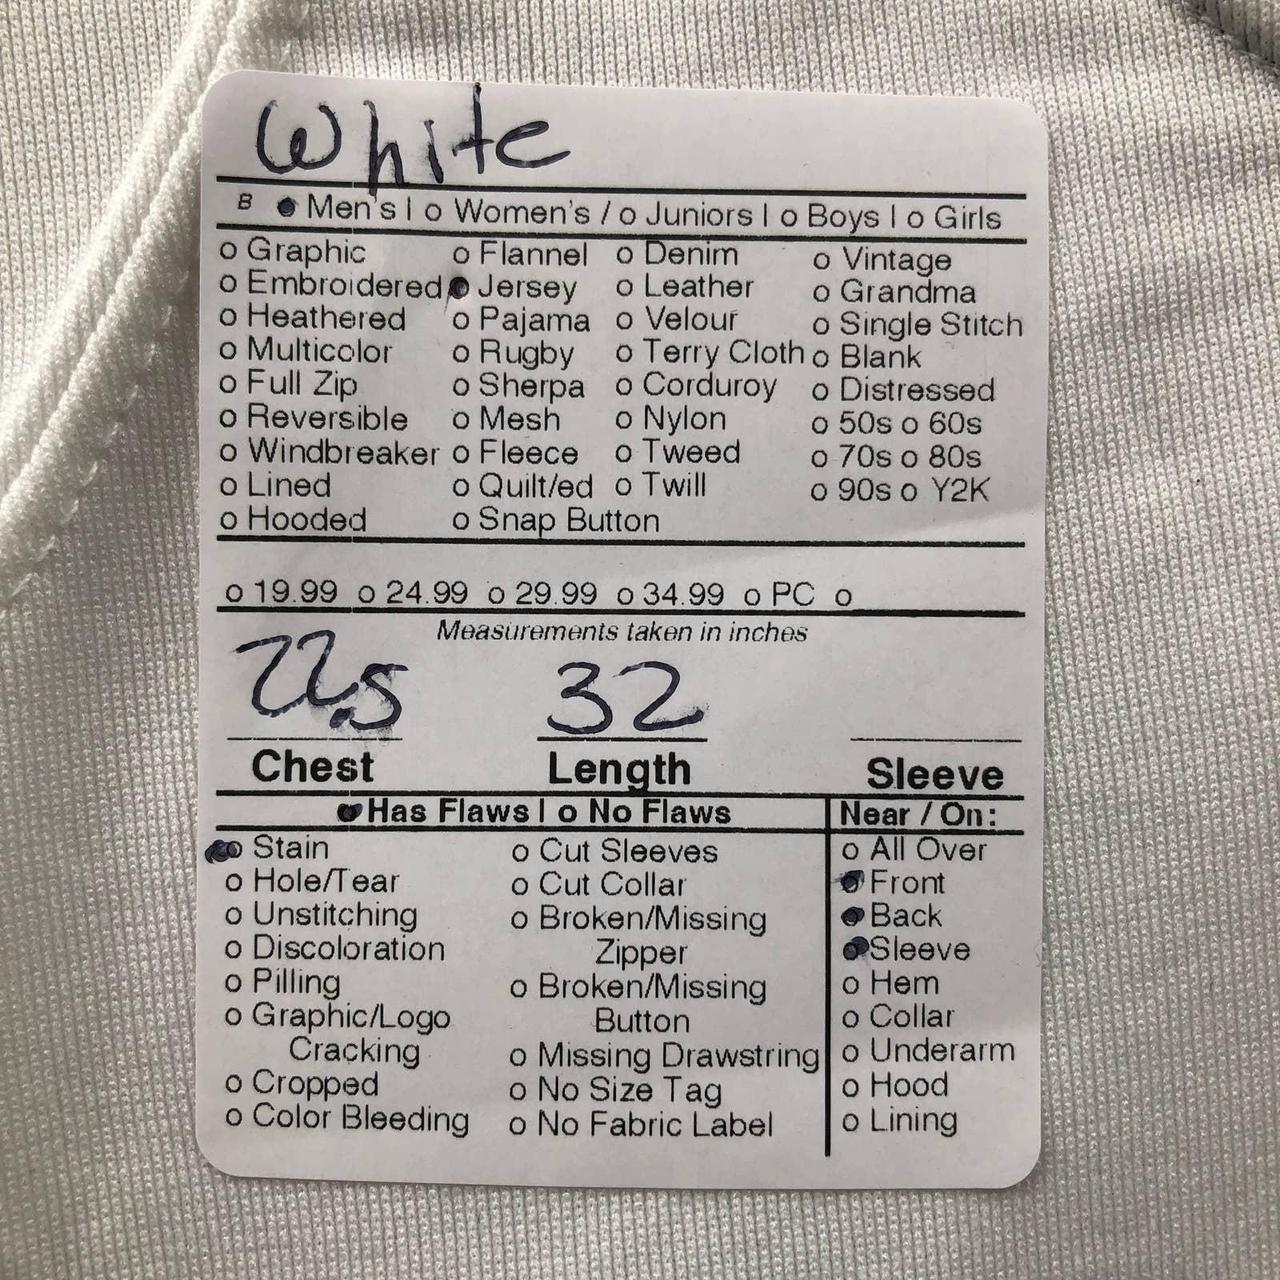 White
B ● Men's | o Women's / o Juniors | o Boys | o Girls
o Graphic o Flannel o Denim o Vintage
o Embroidered ● Jersey o Leather o Grandma
o Heathered o Pajama o Velour o Single Stitch
o Multicolor o Rugby o Terry Cloth o Blank
o Full Zip o Sherpa o Corduroy o Distressed
o Reversible o Mesh o Nylon o 50s o 60s
o Windbreaker o Fleece o Tweed o 70s o 80s
o Lined o Quilt/ed o Twill o 90s o Y2K
o Hooded o Snap Button
o 19.99 o 24.99 o 29.99 o 34.99 o PC o
Measurements taken in inches
22.5 32
Chest Length Sleeve
● Has Flaws | o No Flaws Near / On:
● Stain o Cut Sleeves o All Over
o Hole/Tear o Cut Collar ● Front
o Unstitching o Broken/Missing ● Back
o Discoloration Zipper ● Sleeve
o Pilling o Broken/Missing o Hem
o Graphic/Logo Button o Collar
Cracking o Missing Drawstring o Underarm
o Cropped o No Size Tag o Hood
o Color Bleeding o No Fabric Label o Lining